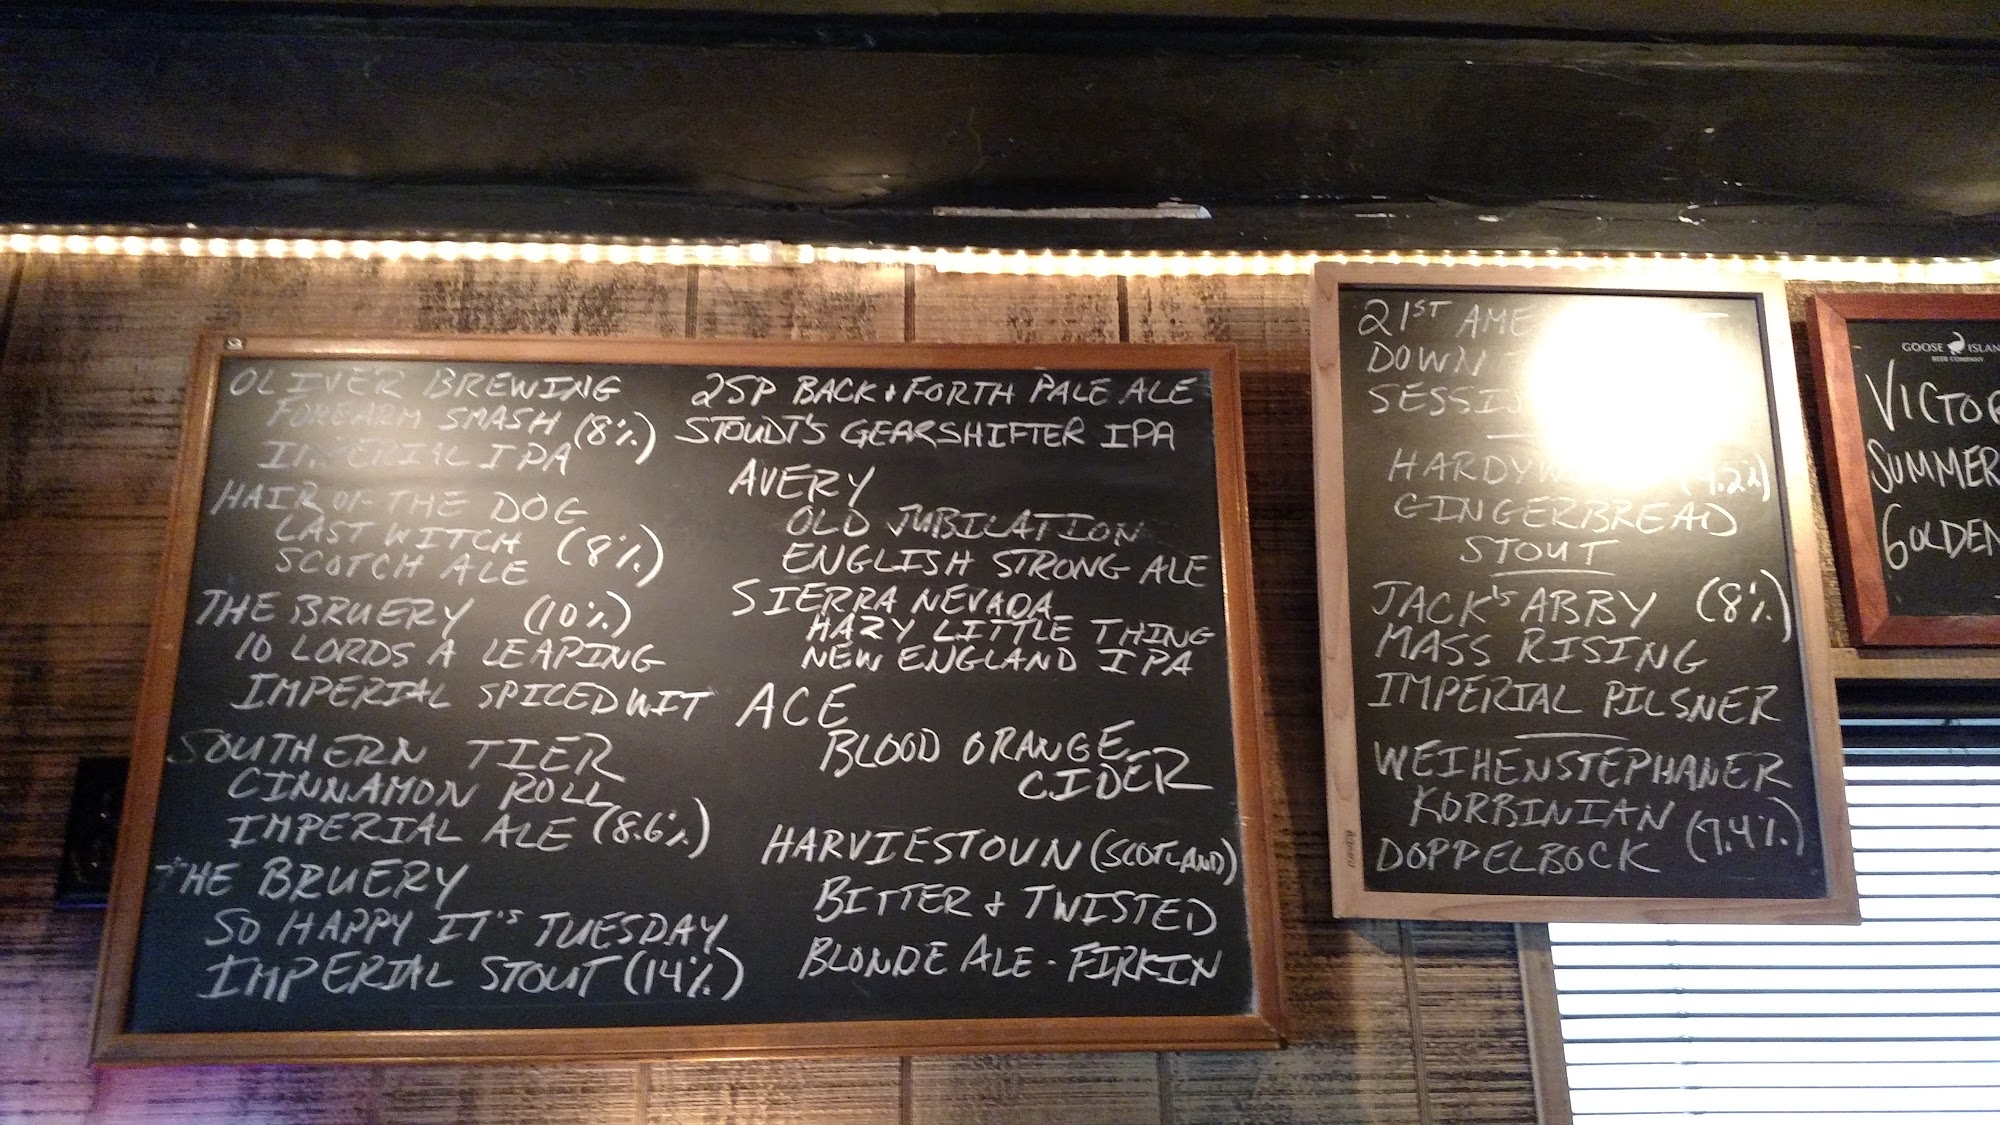 OLIVER BREWING
FOREARM SMASH (8%)
IMPERIAL IPA
HAIR OF THE DOG
LAST WITCH (8%)
SCOTCH ALE
THE BRUERY (10%)
10 LORDS A LEAPING
IMPERIAL SPICED WIT
SOUTHERN TIER
CINNAMON ROLL
IMPERIAL ALE (8.6%)
THE BRUERY
SO HAPPY IT'S TUESDAY
IMPERIAL STOUT (14%)
2SP BACK & FORTH PALE ALE
STOUDT'S GEARSHIFTER IPA
AVERY
OLD JUBILATION
ENGLISH STRONG ALE
SIERRA NEVADA
HAZY LITTLE THING
NEW ENGLAND IPA
ACE
BLOOD ORANGE
CIDER
HARVIESTOUN (SCOTLAND)
BITTER & TWISTED
BLONDE ALE - FIRKIN
21ST AME
DOWN
SESSIO
HARDYW
GINGERBREAD
STOUT
JACK'S ABBY (8%)
MASS RISING
IMPERIAL PILSNER
WEIHENSTEPHANER
KORBINIAN (7.4%)
DOPPELBOCK
GOOSE ISLAN
BEER COMPANY
VICTOR
SUMMER
GOLDEN